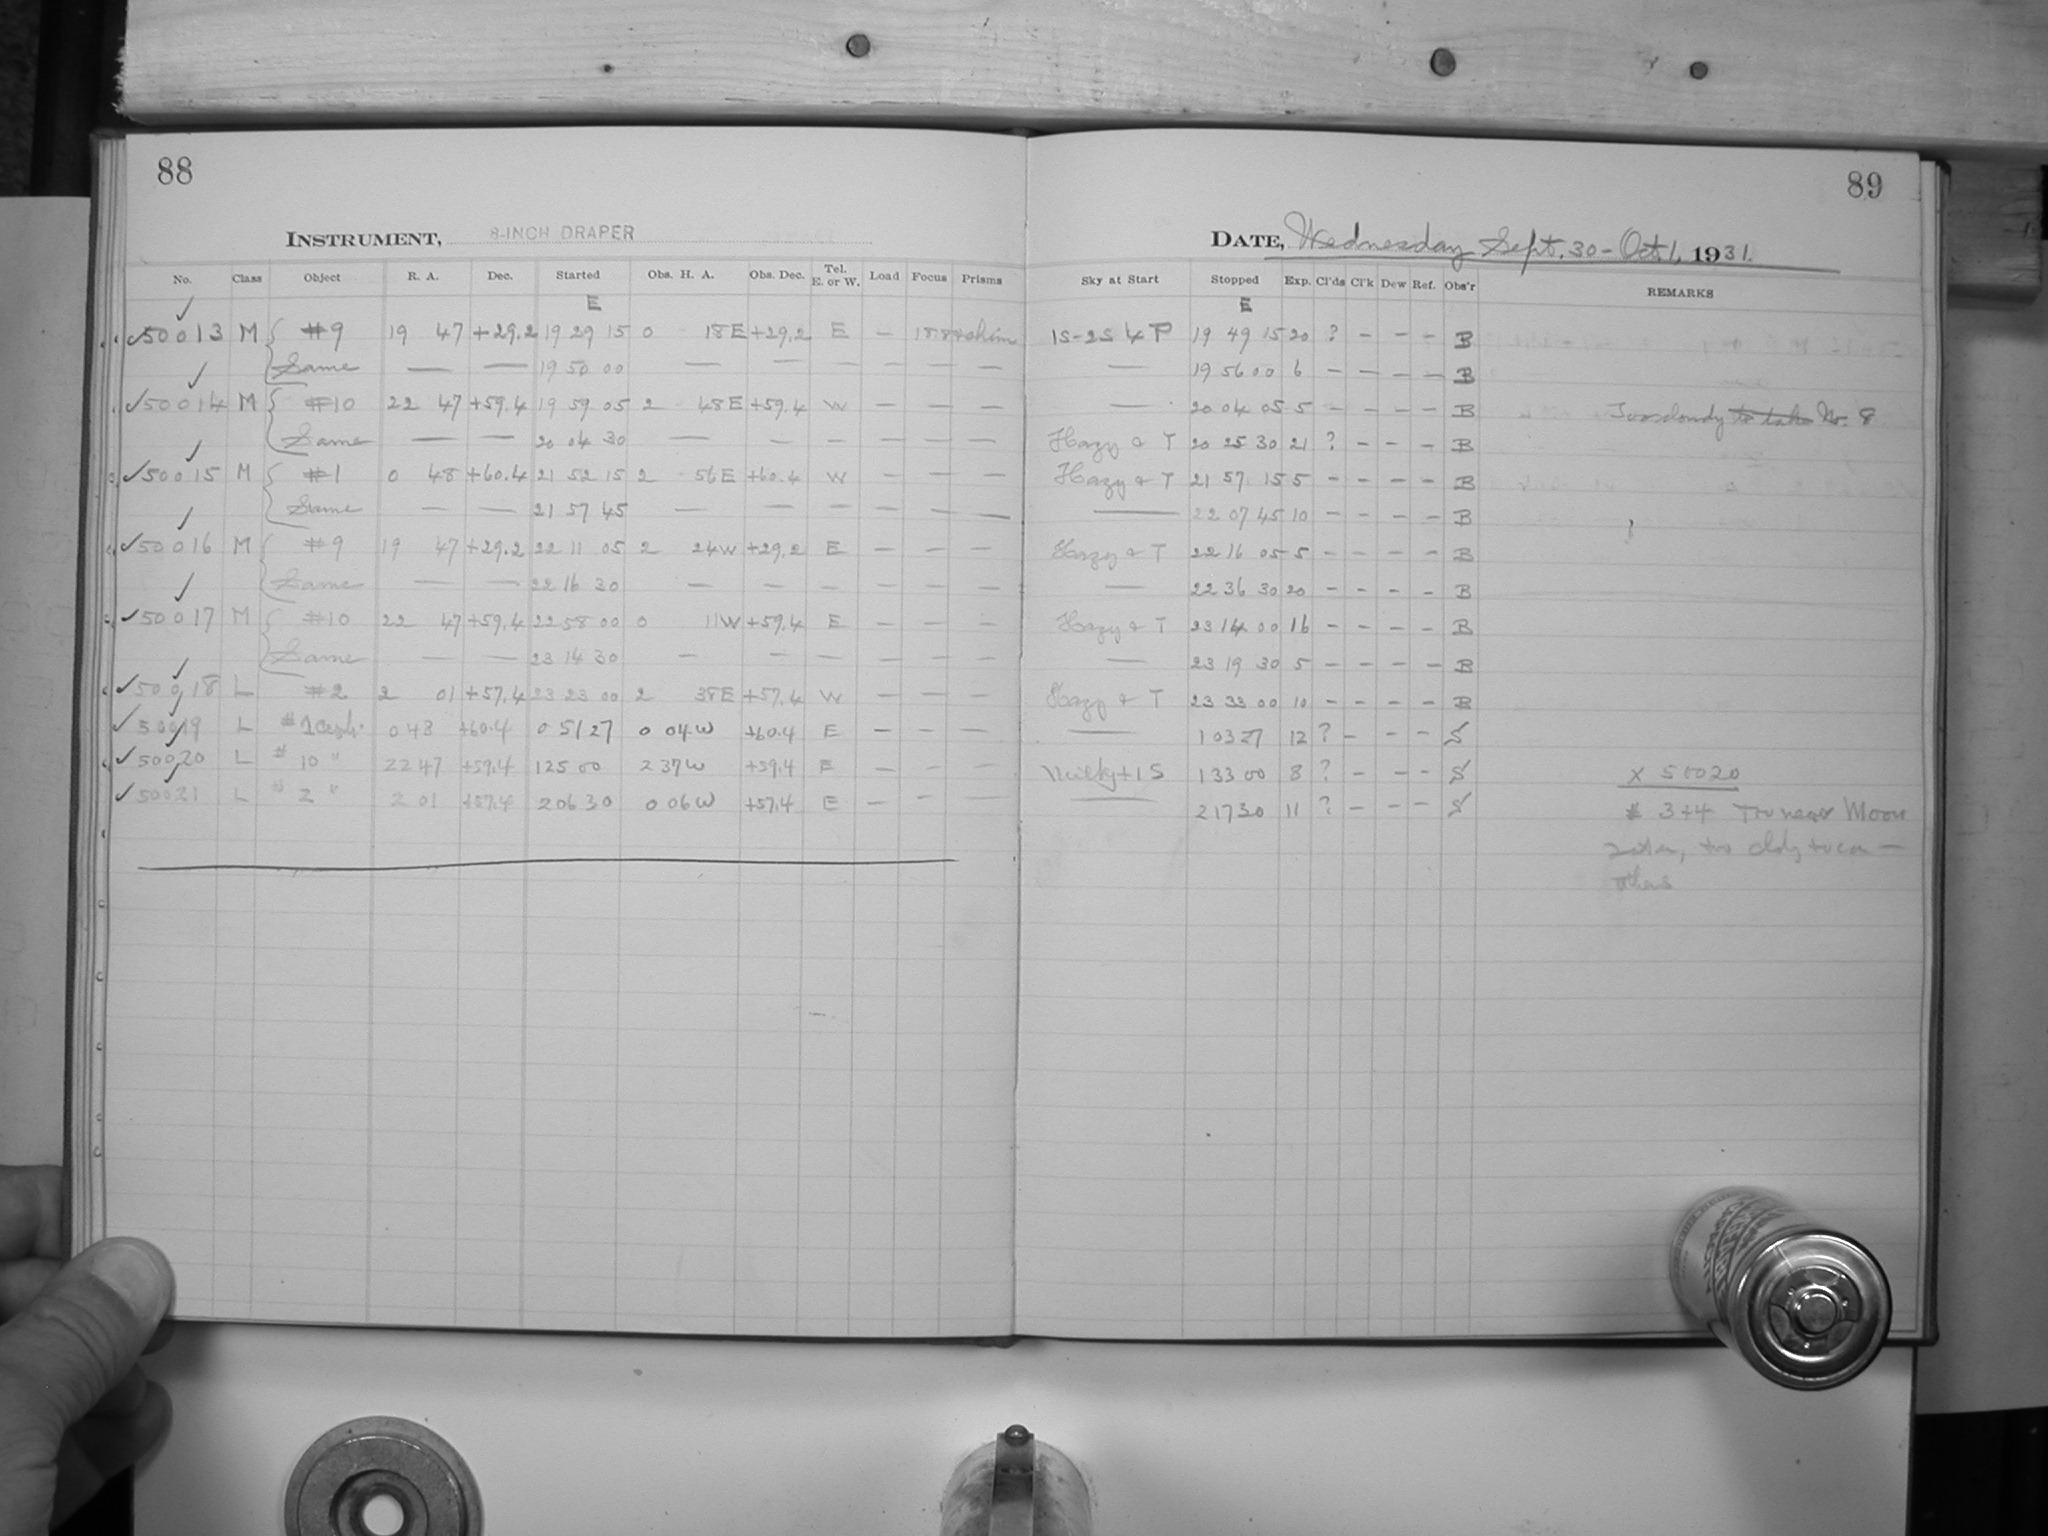 88
INSTRUMENT, 8-INCH DRAPER
No. Class Object R. A. Dec. Started Obs. H. A. Obs. Dec. Tel. E. or W. Load Focus Prisms
E
✓50013 M { #9 19 47 +29.2 19 29 15 0 18E +29.2 E —
Same — — 19 50 00 — — — — — —
✓50014 M { #10 22 47 +59.4 19 59 05 2 48E +59.4 W — — —
Same — — 20 04 30 — — — — — —
✓50015 M { #1 0 48 +60.4 21 52 15 2 56E +60.4 W — — —
Same — — 21 57 45 — — — — — —
✓50016 M { #9 19 47 +29.2 22 11 05 2 24W +29.2 E — — —
Same — — 22 16 30 — — — — — —
✓50017 M { #10 22 47 +59.4 22 58 00 0 11W +59.4 E — — —
Same — — 23 14 30 — — — — — —
✓50018 L #2 2 01 +57.4 23 23 00 2 38E +57.4 W — — —
✓50019 L #1 0 48 +60.4 0 51 27 0 04W +60.4 E — — —
✓50020 L # 10 " 22 47 +59.4 1 25 00 2 37W +59.4 E — — —
✓50021 L # 2 " 2 01 +57.4 2 06 30 0 06W +57.4 E — — —
89
DATE, Wednesday Sept. 30 - Oct 1, 1931.
Sky at Start Stopped Exp. Cl'ds Cl'k Dew Ref. Obs'r REMARKS
E
1S-2S 4 P 19 49 15 20 ? — — — B
— 19 56 00 6 — — — — B
— 20 04 05 5 — — — — B Too cloudy to take No. 8
Hazy & T 20 25 30 21 ? — — — B
Hazy & T 21 57 15 5 — — — — B
— 22 07 45 10 — — — — B
Hazy & T 22 16 05 5 — — — — B
— 22 36 30 20 — — — — B
Hazy & T 23 14 00 16 — — — — B
— 23 19 30 5 — — — — B
Hazy & T 23 33 00 10 — — — — B
— 1 03 27 12 ? — — — S
Milky + 1 S 1 33 00 8 ? — — — S X 50020
— 2 17 30 11 ? — — — S # 3+4 Too near Moon
too cldy
others